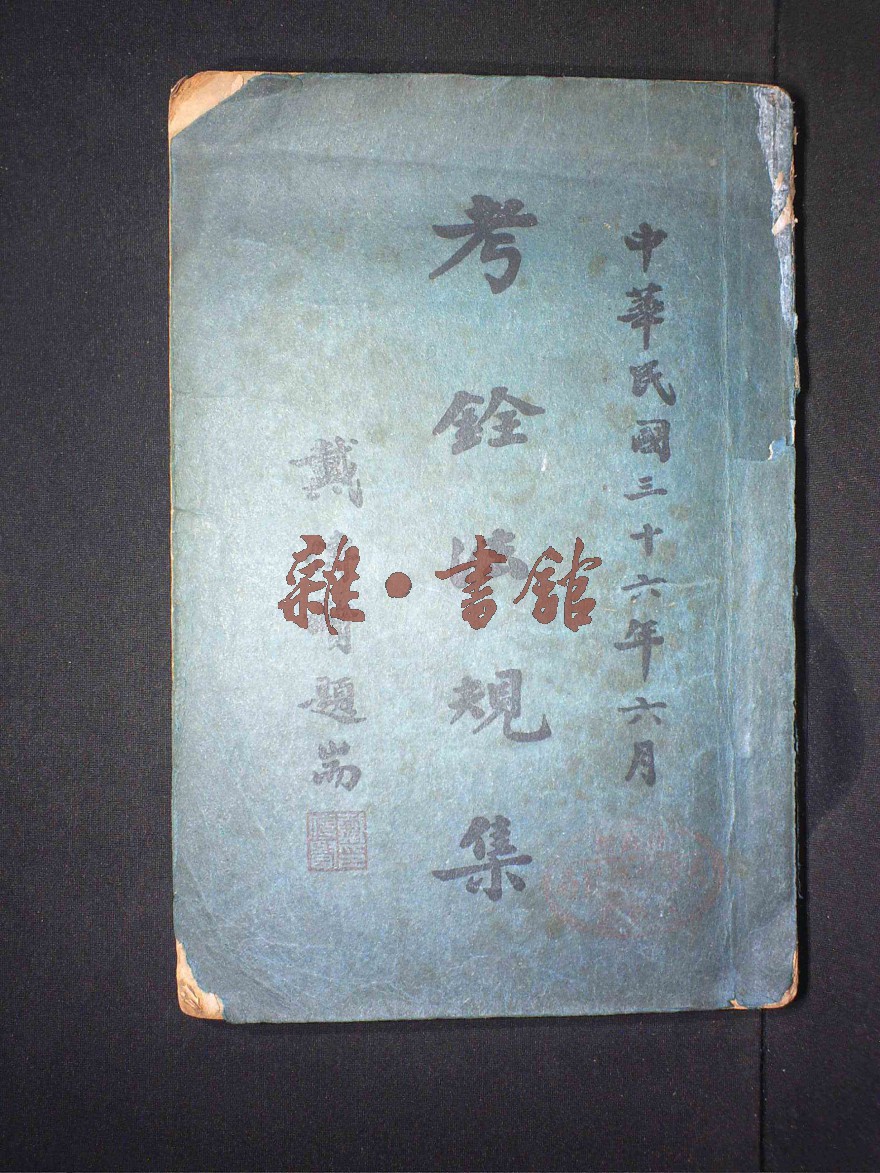 中華民國三十六年六月
考銓法規集
戴題耑
雜·書館